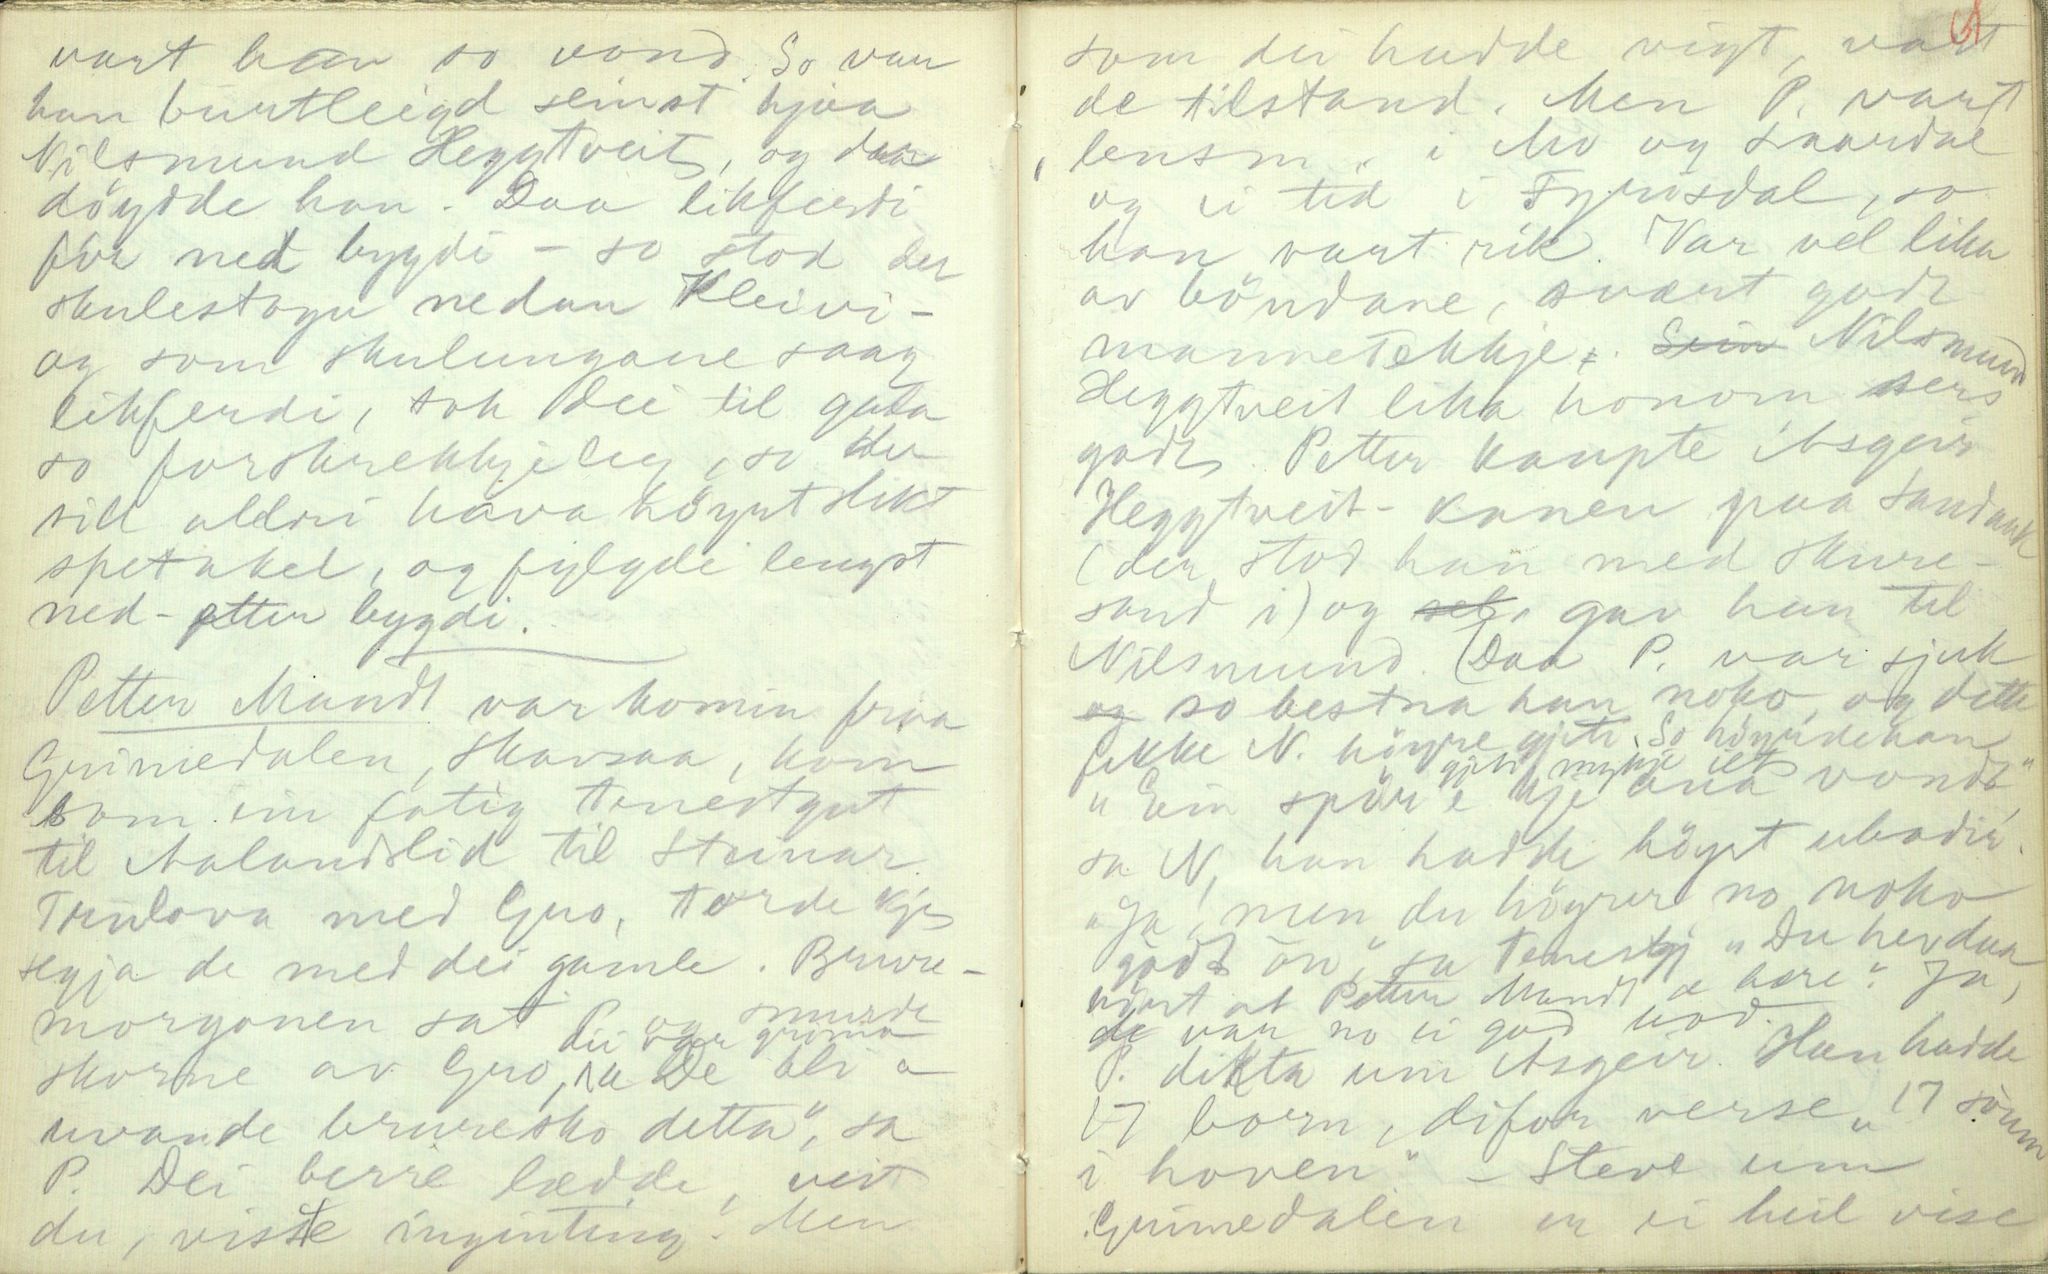 vart han so vond. So var
han burtleigd seinst hjaa
Nilsmund Heggtveit, og daa
döydde han. Daa likferdi
for ned bygdi - so stod der
skulestogu nedan Kleivi -
og som skulungane saag
likferdi, tok dei til gala
so forskrekkjeleg, so der
sill aldri hava höyrt slikt
spetakel, og fylgde lengst
ned-etter bygdi.
Petter Mandt var komin fraa
Grimedalen, Skavsaa, kom
som ein fatig tenestgut
til Aalandslid til Steinar.
Trulova med Gro, torde kje
segja de med dei gamle. Brure-
morgonen sat P. og smurde
skorne av Gro, dei var grimo
"De bli a
uvande bruresko detta", sa
P. Dei berre lædde, veit
du, visste ingenting! Men
som dei hadde vigt, vart
de tilstand. Men P. vart
lensm. i Mo og Laardal
og ei tid i Fyrisdal, so
han vart rik. Var vel lika
av böndane, svært godt
mannetekkje. Sein Nilsmund
Heggtveit lika honom sers
godt. Petter kaupte Asgeir
Heggtveit - kanen paa Sandauk
(der stod han med skure-
sand i) og gav han til
Nilsmund. (Daa P. var sjuk
og so bestna han noko, og dette
fekke N. höyre gjeti. So höyrde han
gjeti mykje ilt
"Ein spör e kje ana vondt"
sa N, han hadde höyrt ubadi.
"Ja, men du höyrer no noko
godt òn", sa tenestgj "Du hev daa
höyrt at Petter Mandt æ bære". Ja,
de var no ei god nod.
P. dikta um Asgeir. Han hadde
17 born, difor verse "17 sömm
i hoven" - Steve um
Grimedalen er ei heil vise